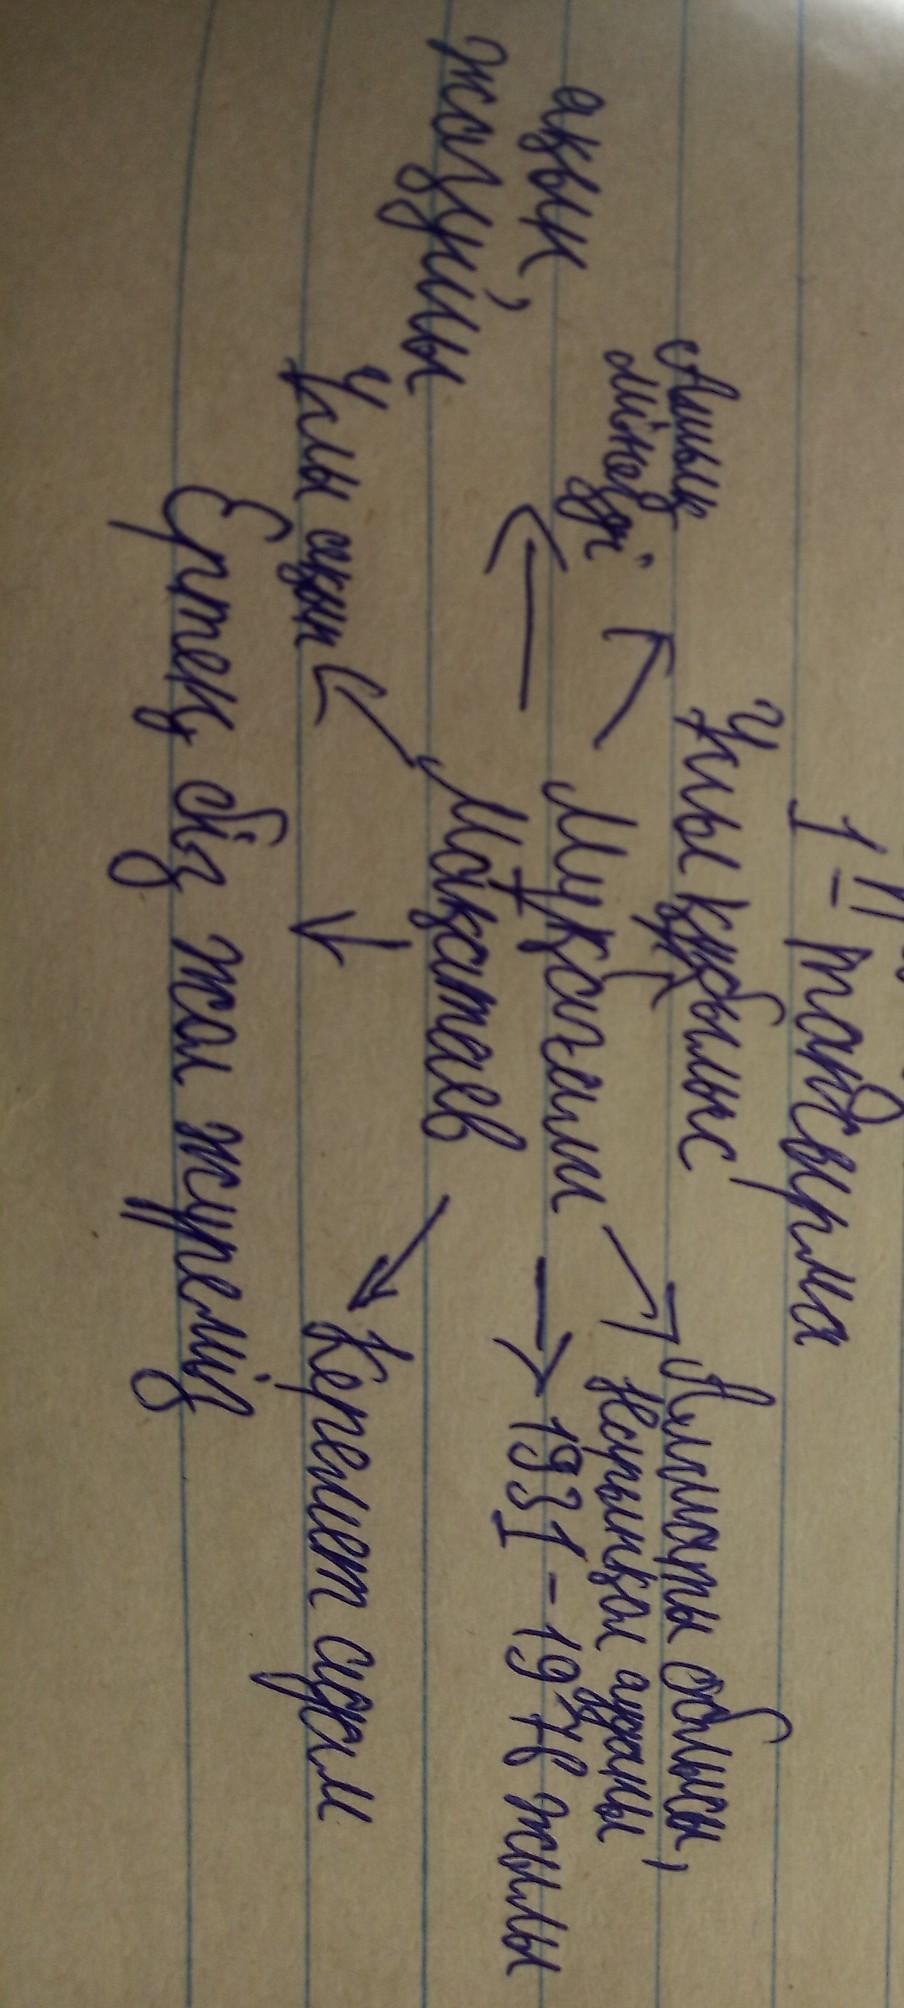 1-тапсырма
Ұлы құбылыс
Ашық
мінезді
Алматы облысы,
Нарынқол ауданы
Мұқағали
ақын,
жазушы
1931-1976 жылы
Мақатаев
Ұлы ақын
Керемет адам
Ертең біз жол жүреміз